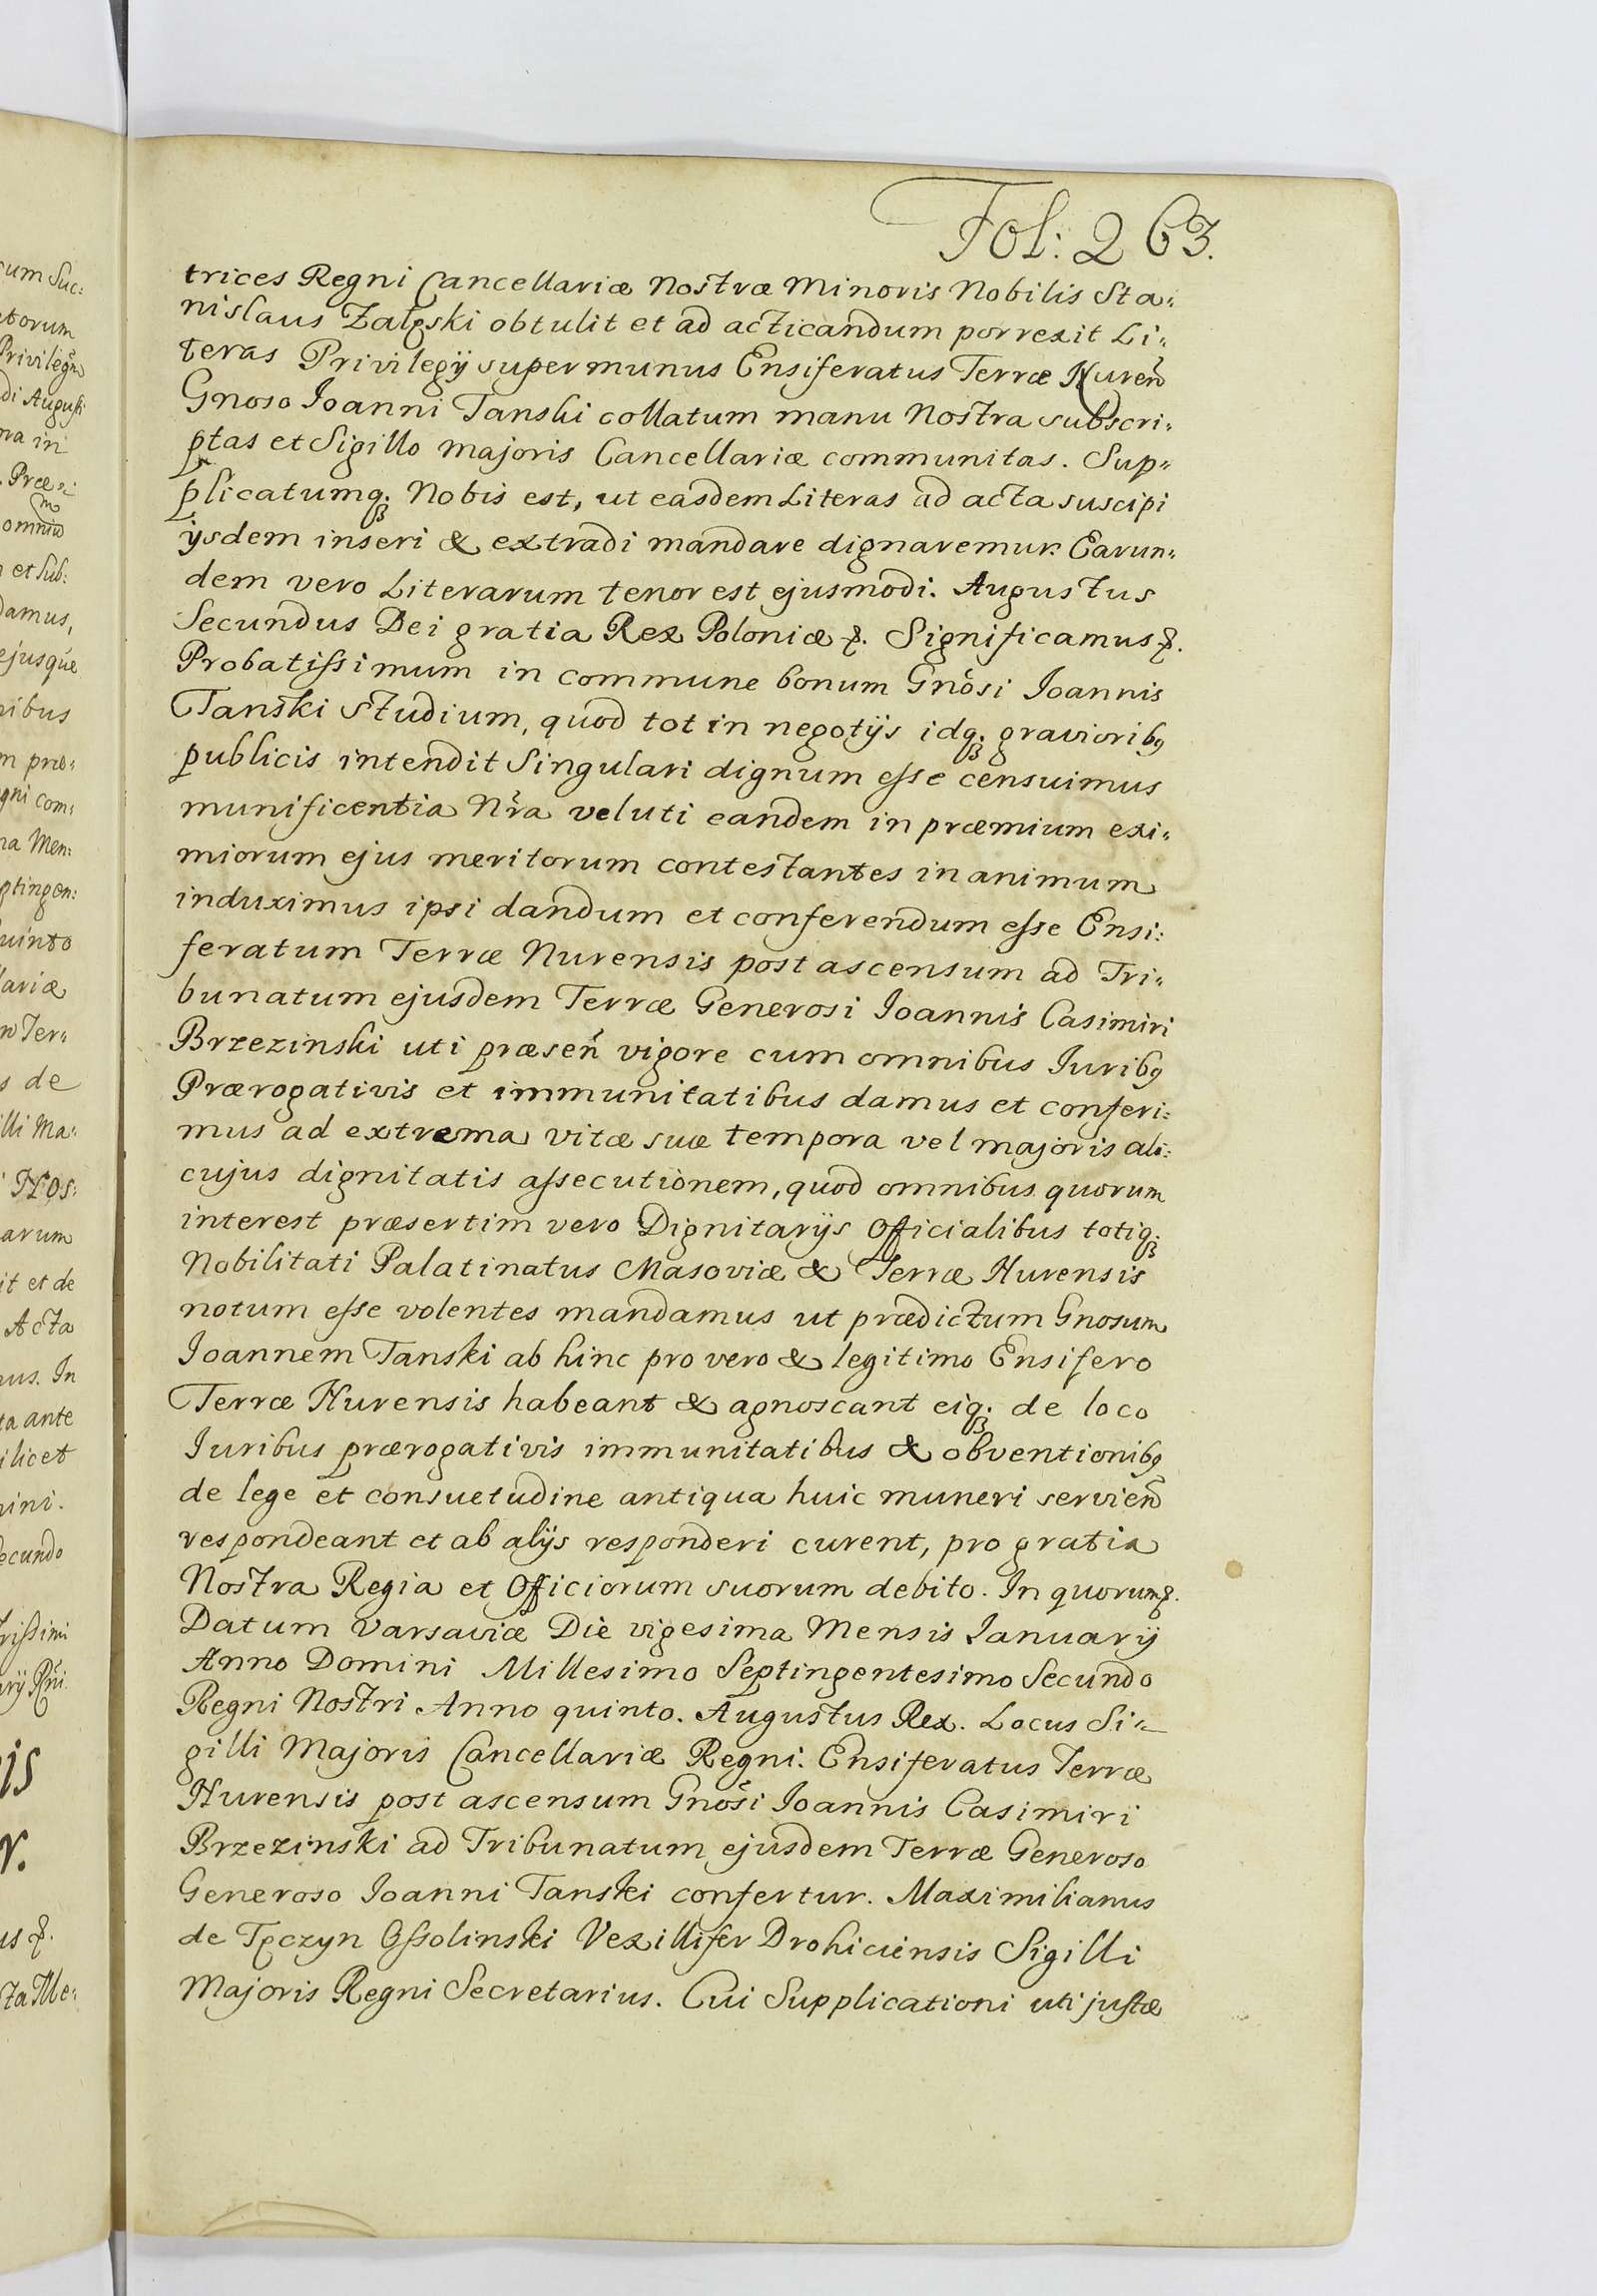 Fol: 263.
trices Regni Cancellariæ Nostræ Minoris Nobilis Sta:
nislaus Zalęski obtulit et ad acticandum porrexit Li:
teras Privilegÿ super munus Ensiferatus Terræ Nureñ
Gnoso Joanni Tanski collatum manu Nostra subscri:
ptas et Sigillo majoris Cancellariæ communitas. Sup:
plicatumq; Nobis est, ut easdem Literas ad acta suscipi
ÿsdem inseri & extradi mandare dignaremur. Earun:
dem vero Literarum tenor est ejusmodi. Augustus
Secundus Dei gratia Rex Poloniæ &. Significamus &.
Probatissimum in commune bonum Gnõsi Joannis
Tanski studium, quod tot in negotÿs idq; gravioribꝰ
publicis intendit Singulari dignum esse censuimus
munificentia Nr̃a veluti eandem in præmium exi:
miorum ejus meritorum contestantes in animum
induximus ipsi dandum et conferendum esse Ensi:
feratum Terræ Nurensis post ascensum ad Tri:
bunatum ejusdem Terræ Generosi Joannis Casimiri
Brzezinski uti præseñ vigore cum omnibus Juribꝰ
Prærogativis et immunitatibus damus et conferi:
mus ad extrema vitæ suæ tempora vel majoris ali:
cujus dignitatis assecutionem, quod omnibus quorum
interest præsertim vero Dignitarÿs Officialibus totiq;
Nobilitati Palatinatus Masoviæ & Terræ Nurensis
notum esse volentes mandamus ut prædictum Gnosum
Joannem Tanski ab hinc pro vero & legitimo Ensifero
Terræ Nurensis habeant & agnoscant eiq; de loco
Juribus prærogativis immunitatibus & obventionibꝰ
de lege et consuetudine antiqua huic muneri servieñ
respondeant et ab alÿs responderi curent, pro gratia
Nostra Regia et Officiorum suorum debito. In quorum &.
Datum Varsaviæ Die vigesima Mensis Januarÿ
Anno Domini Millesimo Septingentesimo Secundo
Regni Nostri Anno quinto. Augustus Rex. Locus Si:
gilli Majoris Cancellariæ Regni. Ensiferatus Terræ
Nurensis post ascensum Gnõsi Joannis Casimiri
Brzezinski ad Tribunatum ejusdem Terræ Generoso
Generoso Joanni Tanski confertur. Maximilianus
de Tęczyn Ossolinski Vexillifer Drohiciensis Sigilli
Majoris Regni Secretarius. Cui Supplicationi uti justæ